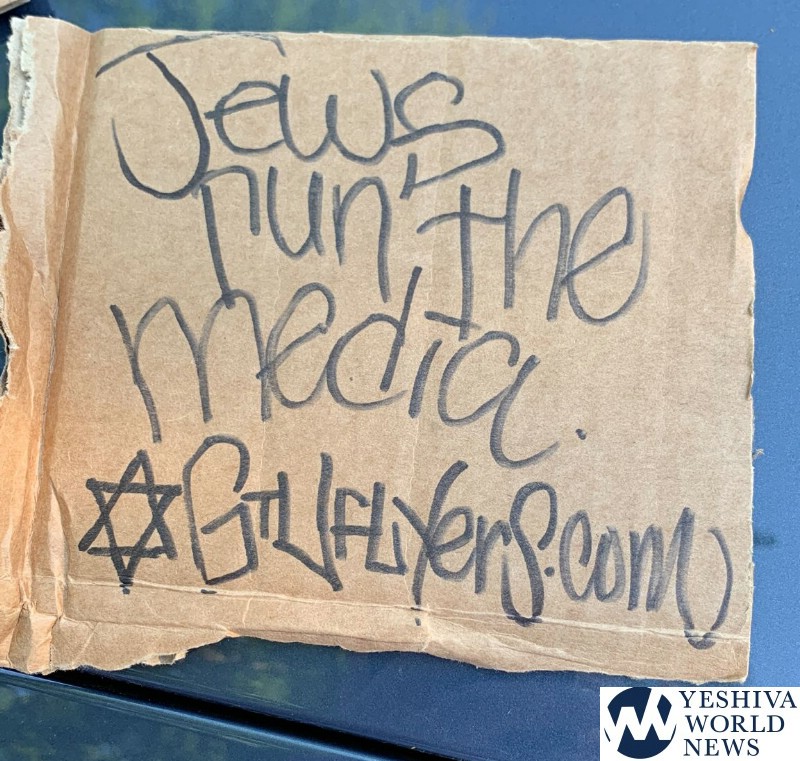 Jews
run the
media.
GTVFLYers.com
YESHIVA
WORLD
NEWS